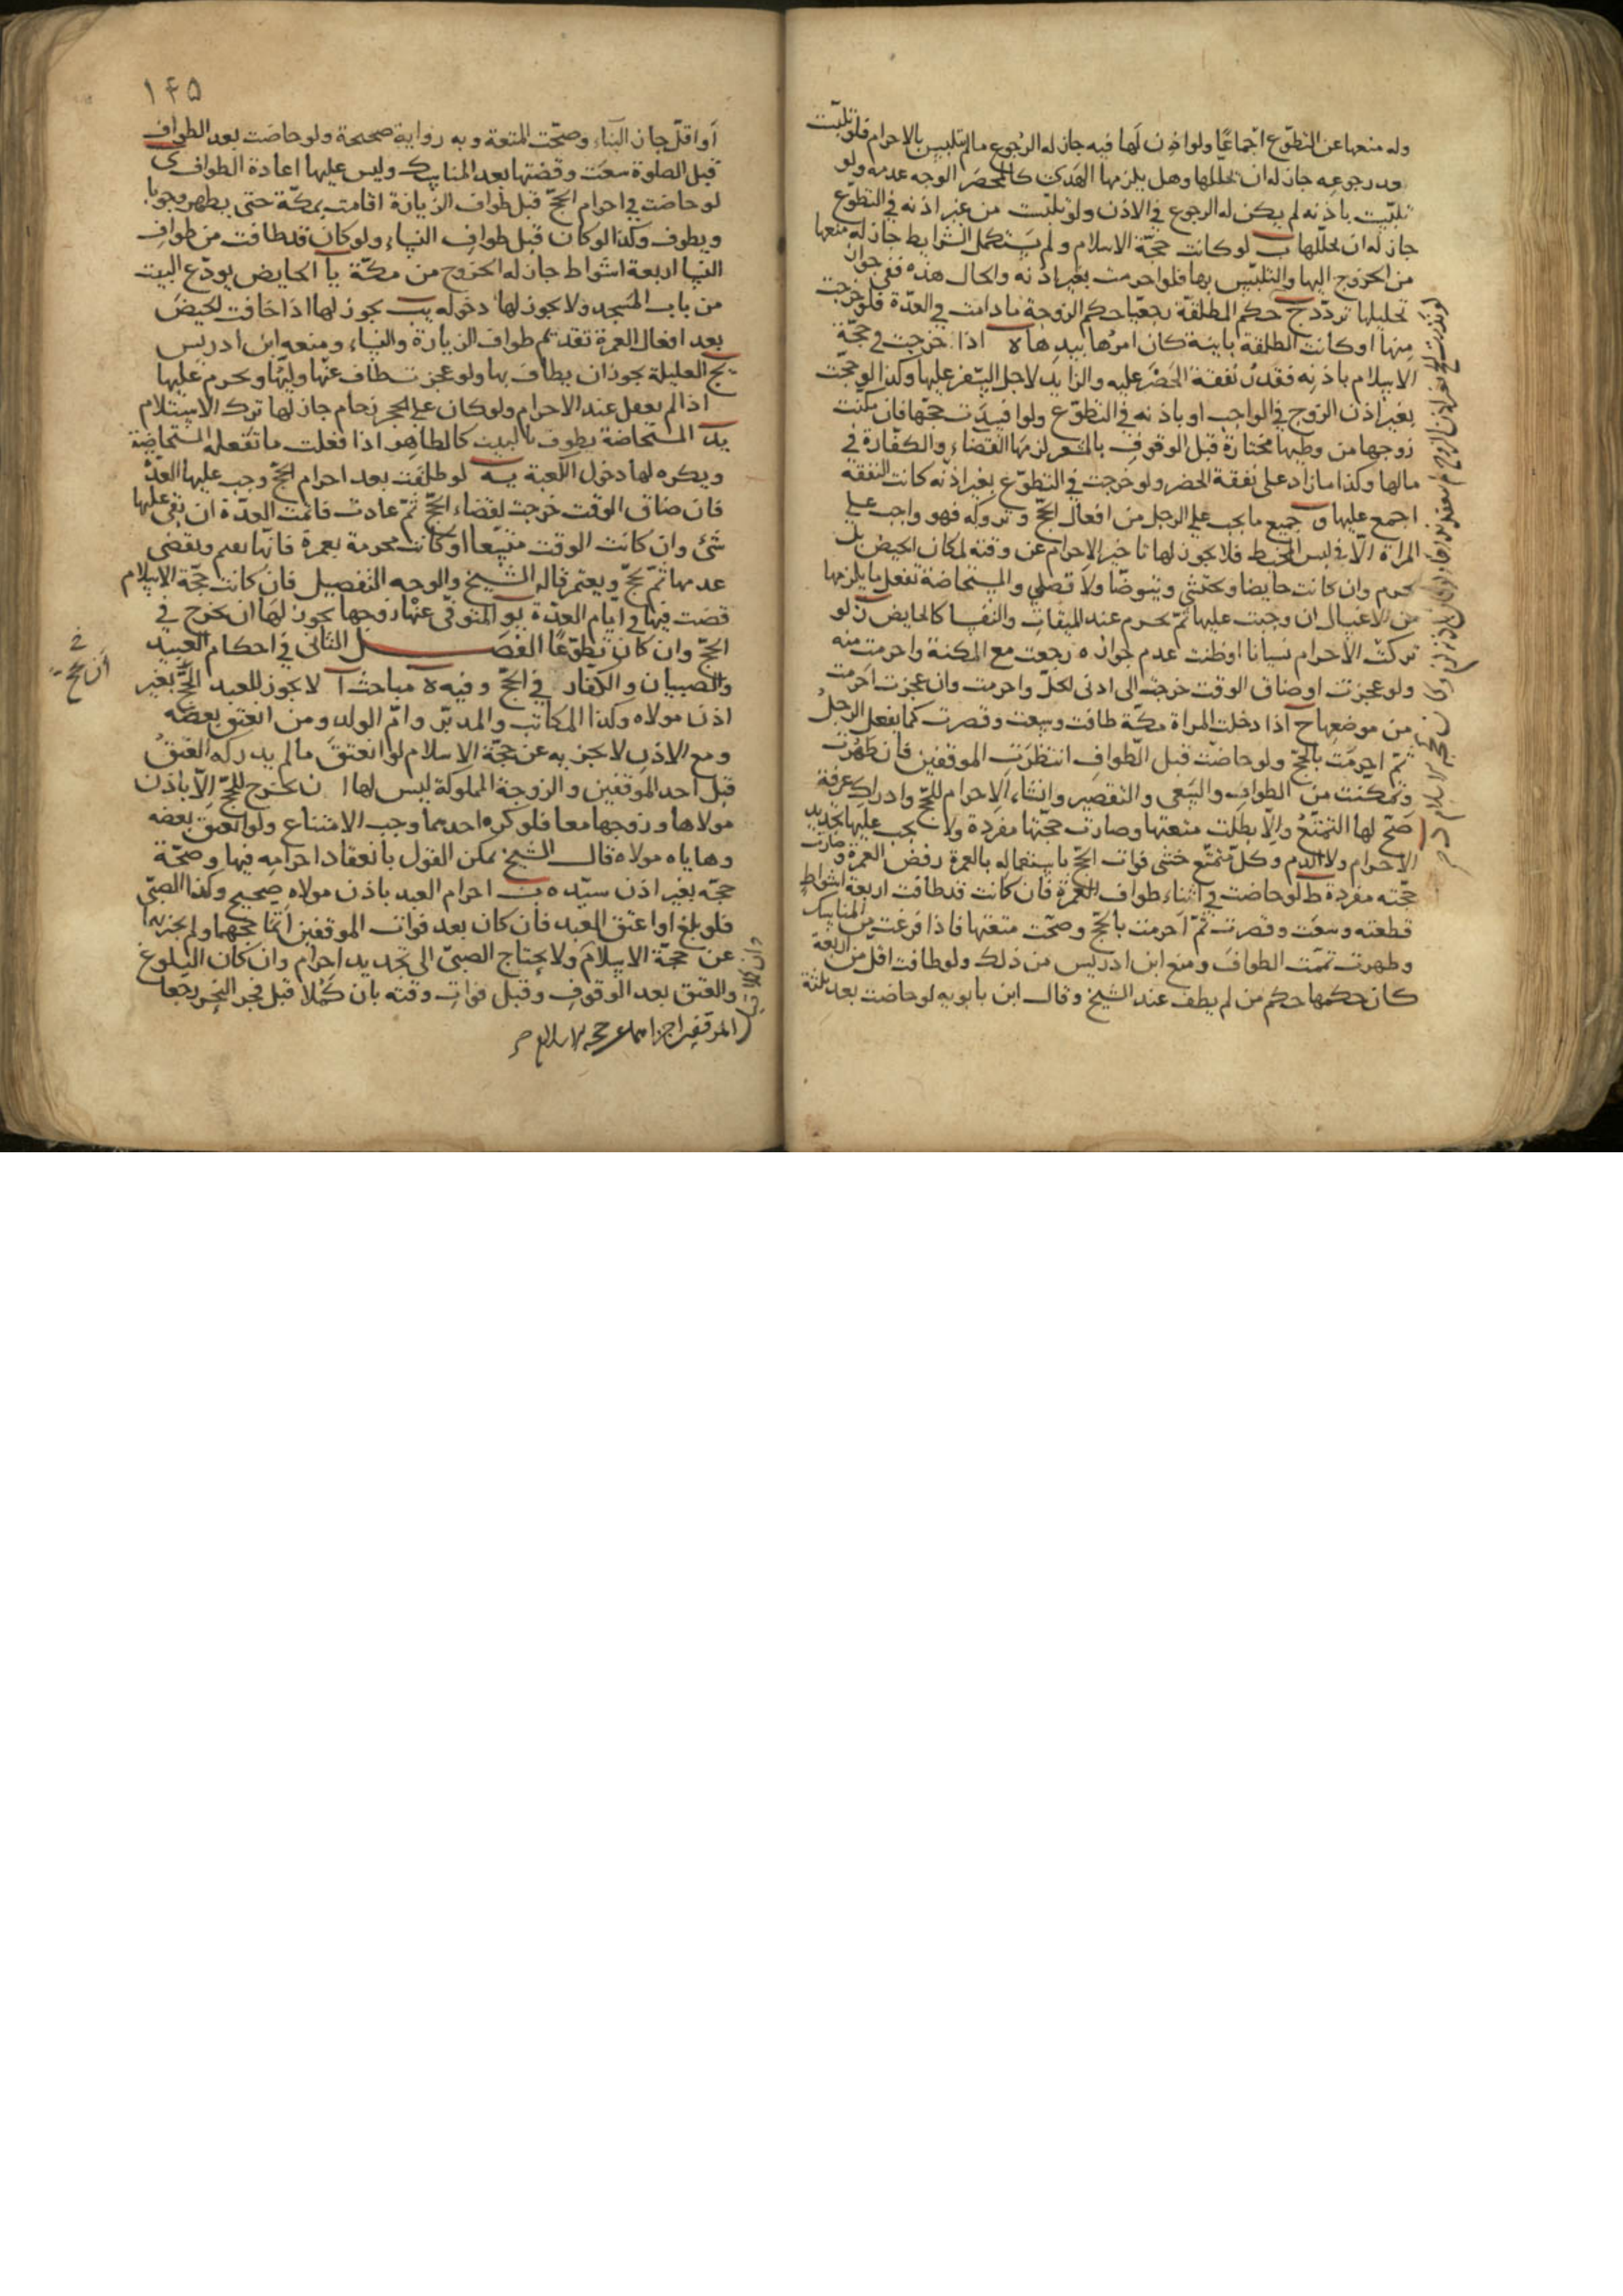 وله منعها عن التطوّع اجماعًا ولو اذن لها فيه جاز له الرجوع مالم تتلبس بالاحرام فلو تلبّست
بعد رجوعه جاز له ان يحللها وهل يلزمها الهدى كالمحصر الوجه عدمه ولو
تلبّست باذنه لم يكن له الرجوع في الاذن ولو تلبّست من غير اذنه في التطوّع
جاز له ان يحللها ب لو كانت حجّة الاسلام ولم يستكمل الشرايط جاز له منعها
من الخروج اليها والتلبّس بها فلو احرمت بغير اذنه والحال هذه ففى جواز
تحليلها تردّد ج حكم المطلقة رجعيّا حكم الزوجة ما دامت في العدّة فلو خرجت
منها او كانت المطلقة باينة كان امرها بيدها ه اذا خرجت في حجّة
الاسلام باذنه فقدر نفقة الحضر عليه والزايد لاجل السفر عليها وكذا لو حجّت
بغير اذن الزوج في الواجب او باذنه في التطوّع ولو افسدت حجّها فان مكّنت
زوجها من وطيها مختارة قبل الوقوف بالمشعر لزمها القضاء والكفّارة في
مالها وكذا ما زاد على نفقة الحضر ولو خرجت في التطوّع بغير اذنه كانت النفقة
اجمع عليها و جميع ما يجب على الرجل من افعال الحجّ وتروكه فهو واجب على
المراة الّا في لبس المخيط فلا يجوز لها تاخير الاحرام عن وقته لمكان الحيض بل
تحرم وان كانت حايضا وتحتشى وتتوضّا ولا تصلي والمستحاضة تفعل ما يلزمها
من الاغسال ان وجبت عليها ثمّ تحرم عند الميقات والنفسا كالحايض ز لو
تركت الاحرام نسيانا او ظنت عدم جوازه رجعت مع المكنة واحرمت منه
ولو عجزت او ضاق الوقت خرجت الى ادنى الحلّ واحرمت وان عجزت احرمت
من موضعها ح اذا دخلت المراة مكّة طافت وسعت وقصرت كما يفعل الرجل
ثمّ احرمت بالحجّ ولو حاضت قبل الطواف انتظرت الموقفين فان طهرت
وتمكّنت من الطواف والسعى والتقصير وانشاء الاحرام للحجّ وادراك عرفة
صحّ لها التمتّع والّا بطلت متعتها وصارت حجّتها مفردة ولا يجب عليها تجديد
الاحرام ولا الدم وكلّ متمتّع خشى فوات الحجّ باستعماله بالعمرة رفض العمرة وصارت
حجّته مفردة ط لو حاضت في اثناء طواف العمرة فان كانت قد طافت اربعة اشواط
قطعته وسعت وقصرت ثمّ احرمت بالحجّ وصحّت متعتها فاذا فرغت من المناسك
وطهرت تممت الطواف ومنع ابن ادريس من ذلك ولو طافت اقل من اربعة
كان حكمها حكم من لم يطف عند الشيخ وقال ابن بابويه لو حاضت بعد ثلثة
١٤٥
او اقلّ جاز البناء وصحّت المتعة وبه رواية صحيحة ولو حاضت بعد الطواف
قبل الصلوة سعت وقضتها بعد المناسك وليس عليها اعادة الطواف ى
لو حاضت في احرام الحجّ قبل طواف الزيارة اقامت بمكّة حتى يطهر وجوبا
ويطوف وكذا لو كان قبل طواف النساء ولو كان قد طافت من طواف
النسا اربعة اشواط جاز له الخروج من مكّة يا الحايض يودّع البيت
من باب المسجد ولا يجوز لها دخوله يب يجوز لها اذا خافت الحيض
بعد افعال العمرة تقديم طواف الزيارة والنساء ومنعه ابن ادريس
يج العليلة يجوز ان يطاف بها ولو عجزت طاف عنها وليّها ويحرم عليها
اذا لم يعقل عند الاحرام ولو كان على الحجر زحام جاز لها ترك الاستلام
يد المستحاضة يطوف بالبيت كالطاهر اذا فعلت ما تفعله المستحاضة
ويكره لها دخول الكعبة يه لو طلقت بعد احرام الحجّ وجب عليها العدّة
فان ضاق الوقت خرجت لقضاء الحجّ ثمّ عادت فاتمّت العدّة ان بقى عليها
شئ وان كانت الوقت متّسعا او كانت محرمة بعمرة فانّها تقيم وتقضى
عدّتها ثمّ يحجّ ويعتمر قاله الشيخ والوجه التفصيل فان كانت حجّة الاسلام
قضت فيها في ايّام العدّة يو المتوفّى عنها زوجها يجوز لها ان يخرج في
الحجّ وان كان تطوّعًا الفصل الثانى في احكام العبيد
والصبيان والكفار في الحجّ وفيه ه مباحث ا لا يجوز للعبد الحجّ بغير
اذن مولاه وكذا المكاتب والمدبّر وامّ الولد ومن انعتق بعضه
ومع الاذن لا يجزيه عن حجّة الاسلام لو انعتق مالم يدركه العتق
قبل احد الموقفين والزوجة المملوكة ليس لها ان يخرج للحجّ الّا باذن
مولاها وزوجها معا فلو كره احدهما وجب الامتناع ولو انعتق بعضه
وهاياه مولاه قال الشيخ يمكن القول بانعقاد احرامه فيها وصحّة
حجّه بغير اذن سيّده ب احرام العبد باذن مولاه صحيح وكذا الصبّى
فلو بلغ او اعتق العبد فان كان بعد فوات الموقفين اتمّا حجّهما ولم يجزيهما
عن حجّة الاسلام ولا يحتاج الصبىّ الى تجديد احرام وان كان البلوغ
والعتق بعد الوقوف وقبل فوات وقته بان كملا قبل فجر النحر رجعا
الموقفين اجزاهما عن حجه الاسلام صح